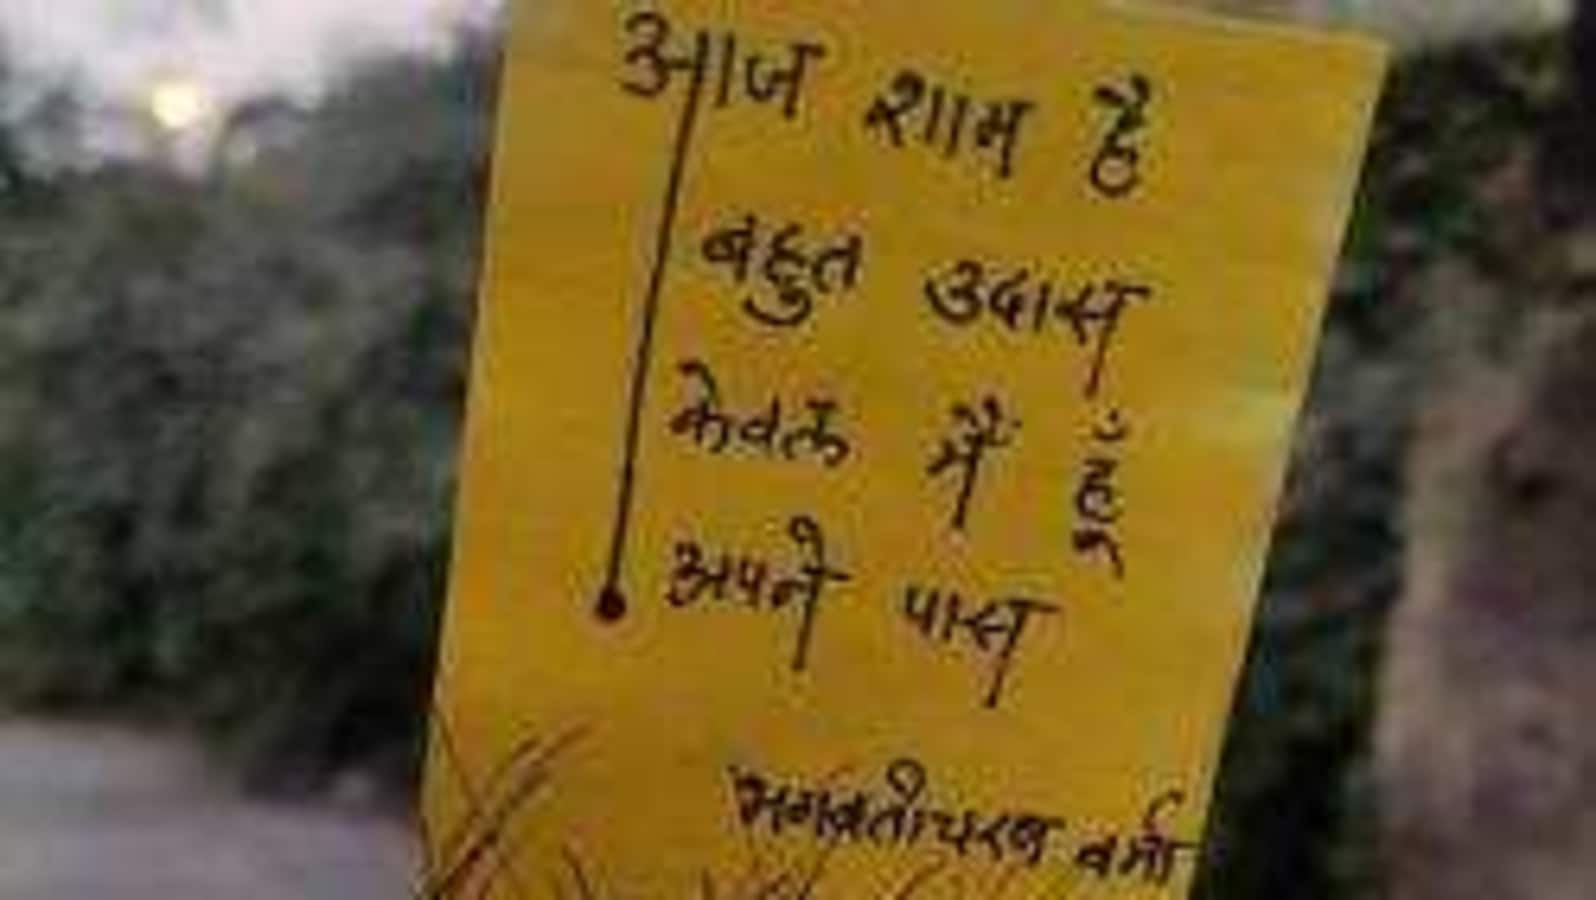 आज शाम है
बहुत उदास
केवल मैं हूं
अपने पास
भगवतीचरण वर्मा